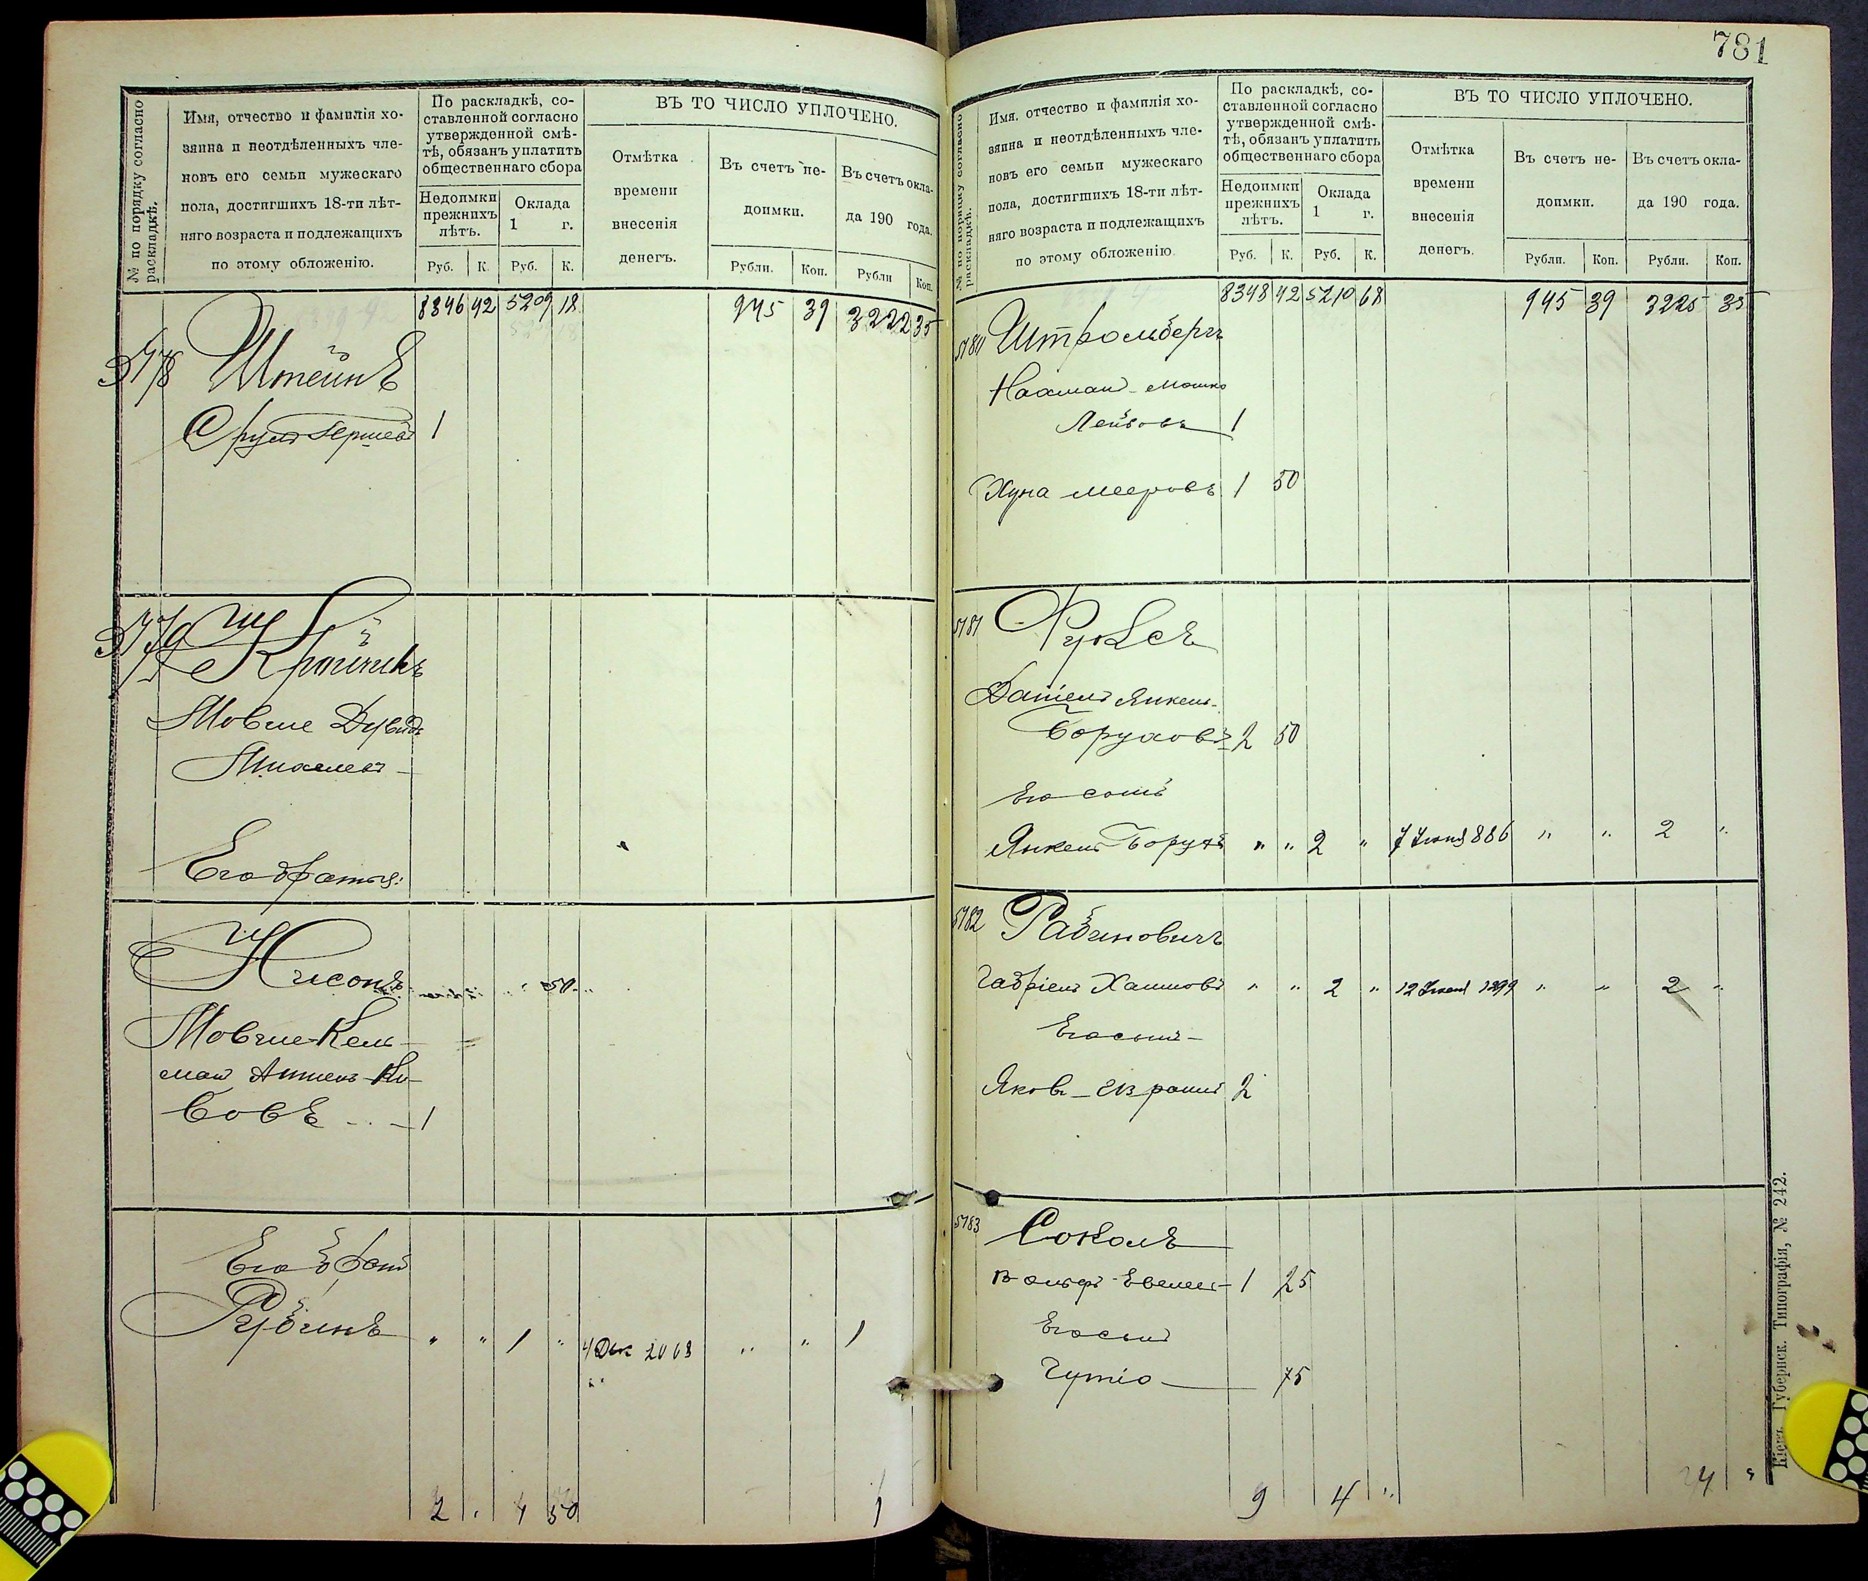 № по порядку согласно раскладкѣ.
Имя, отчество и фамилія хо-
зяина и неотдѣленныхъ чле-
новъ его семьи мужескаго
пола, достигшихъ 18-ти лѣт-
няго возраста и подлежащихъ
по этому обложенію.
По раскладкѣ, со-
ставленной согласно
утвержденной смѣ-
тѣ, обязанъ уплатить
общественнаго сбора
Недоимки
прежнихъ
лѣтъ.
Оклада
1 г.
Руб. К. Руб. К.
ВЪ ТО ЧИСЛО УПЛОЧЕНО.
Отмѣтка
времени
внесенія
денегъ.
Въ счетъ не-
доимки.
Въ счетъ окла-
да 190 года.
Рубли. Коп. Рубли Коп.
8346 42 5209 18 945 39 3222 35
5178 Штейнъ
Сруль Гершевъ 1
5179
Мовше Дувидъ
Его братья:
50
Мовше-Кель-
1
Его братъ
Рубинъ " " 1 " 4 Дек " " 1
2 " 1 50 1
781
№ по порядку согласно раскладкѣ.
Имя, отчество и фамилія хо-
зяина и неотдѣленныхъ чле-
новъ его семьи мужескаго
пола, достигшихъ 18-ти лѣт-
няго возраста и подлежащихъ
по этому обложенію
По раскладкѣ, со-
ставленной согласно
утвержденной смѣ-
тѣ, обязанъ уплатить
общественнаго сбора
Недоимки
прежнихъ
лѣтъ.
Оклада
1 г.
Руб. К. Руб. К.
ВЪ ТО ЧИСЛО УПЛОЧЕНО.
Отмѣтка
времени
внесенія
денегъ.
Въ счетъ не-
доимки.
Въ счетъ окла-
да 190 года.
Рубли. Коп. Рубли. Коп.
8348 42 5210 68 945 39 3225 35
5180 Штромбергъ
Нахман-Мошко
Лейбовъ 1
Хуна Мееровъ 1 50
5181 Фуксъ
Даніелъ Янкель-
Боруховъ 2 50
Его сынъ
Янкель Борухъ " " 2 " 7 Іюня 886 " " 2 "
5182 Рабиновичъ
Габріель Хаимовъ " " 2 " 12 1899 " " 2 "
Его сынъ
Яковъ-Израиль 2
5183 Соколъ
Вольфъ 1 25
Его сынъ
75
9 4 " 4
Кіевъ. Губернск. Типографія, № 242.